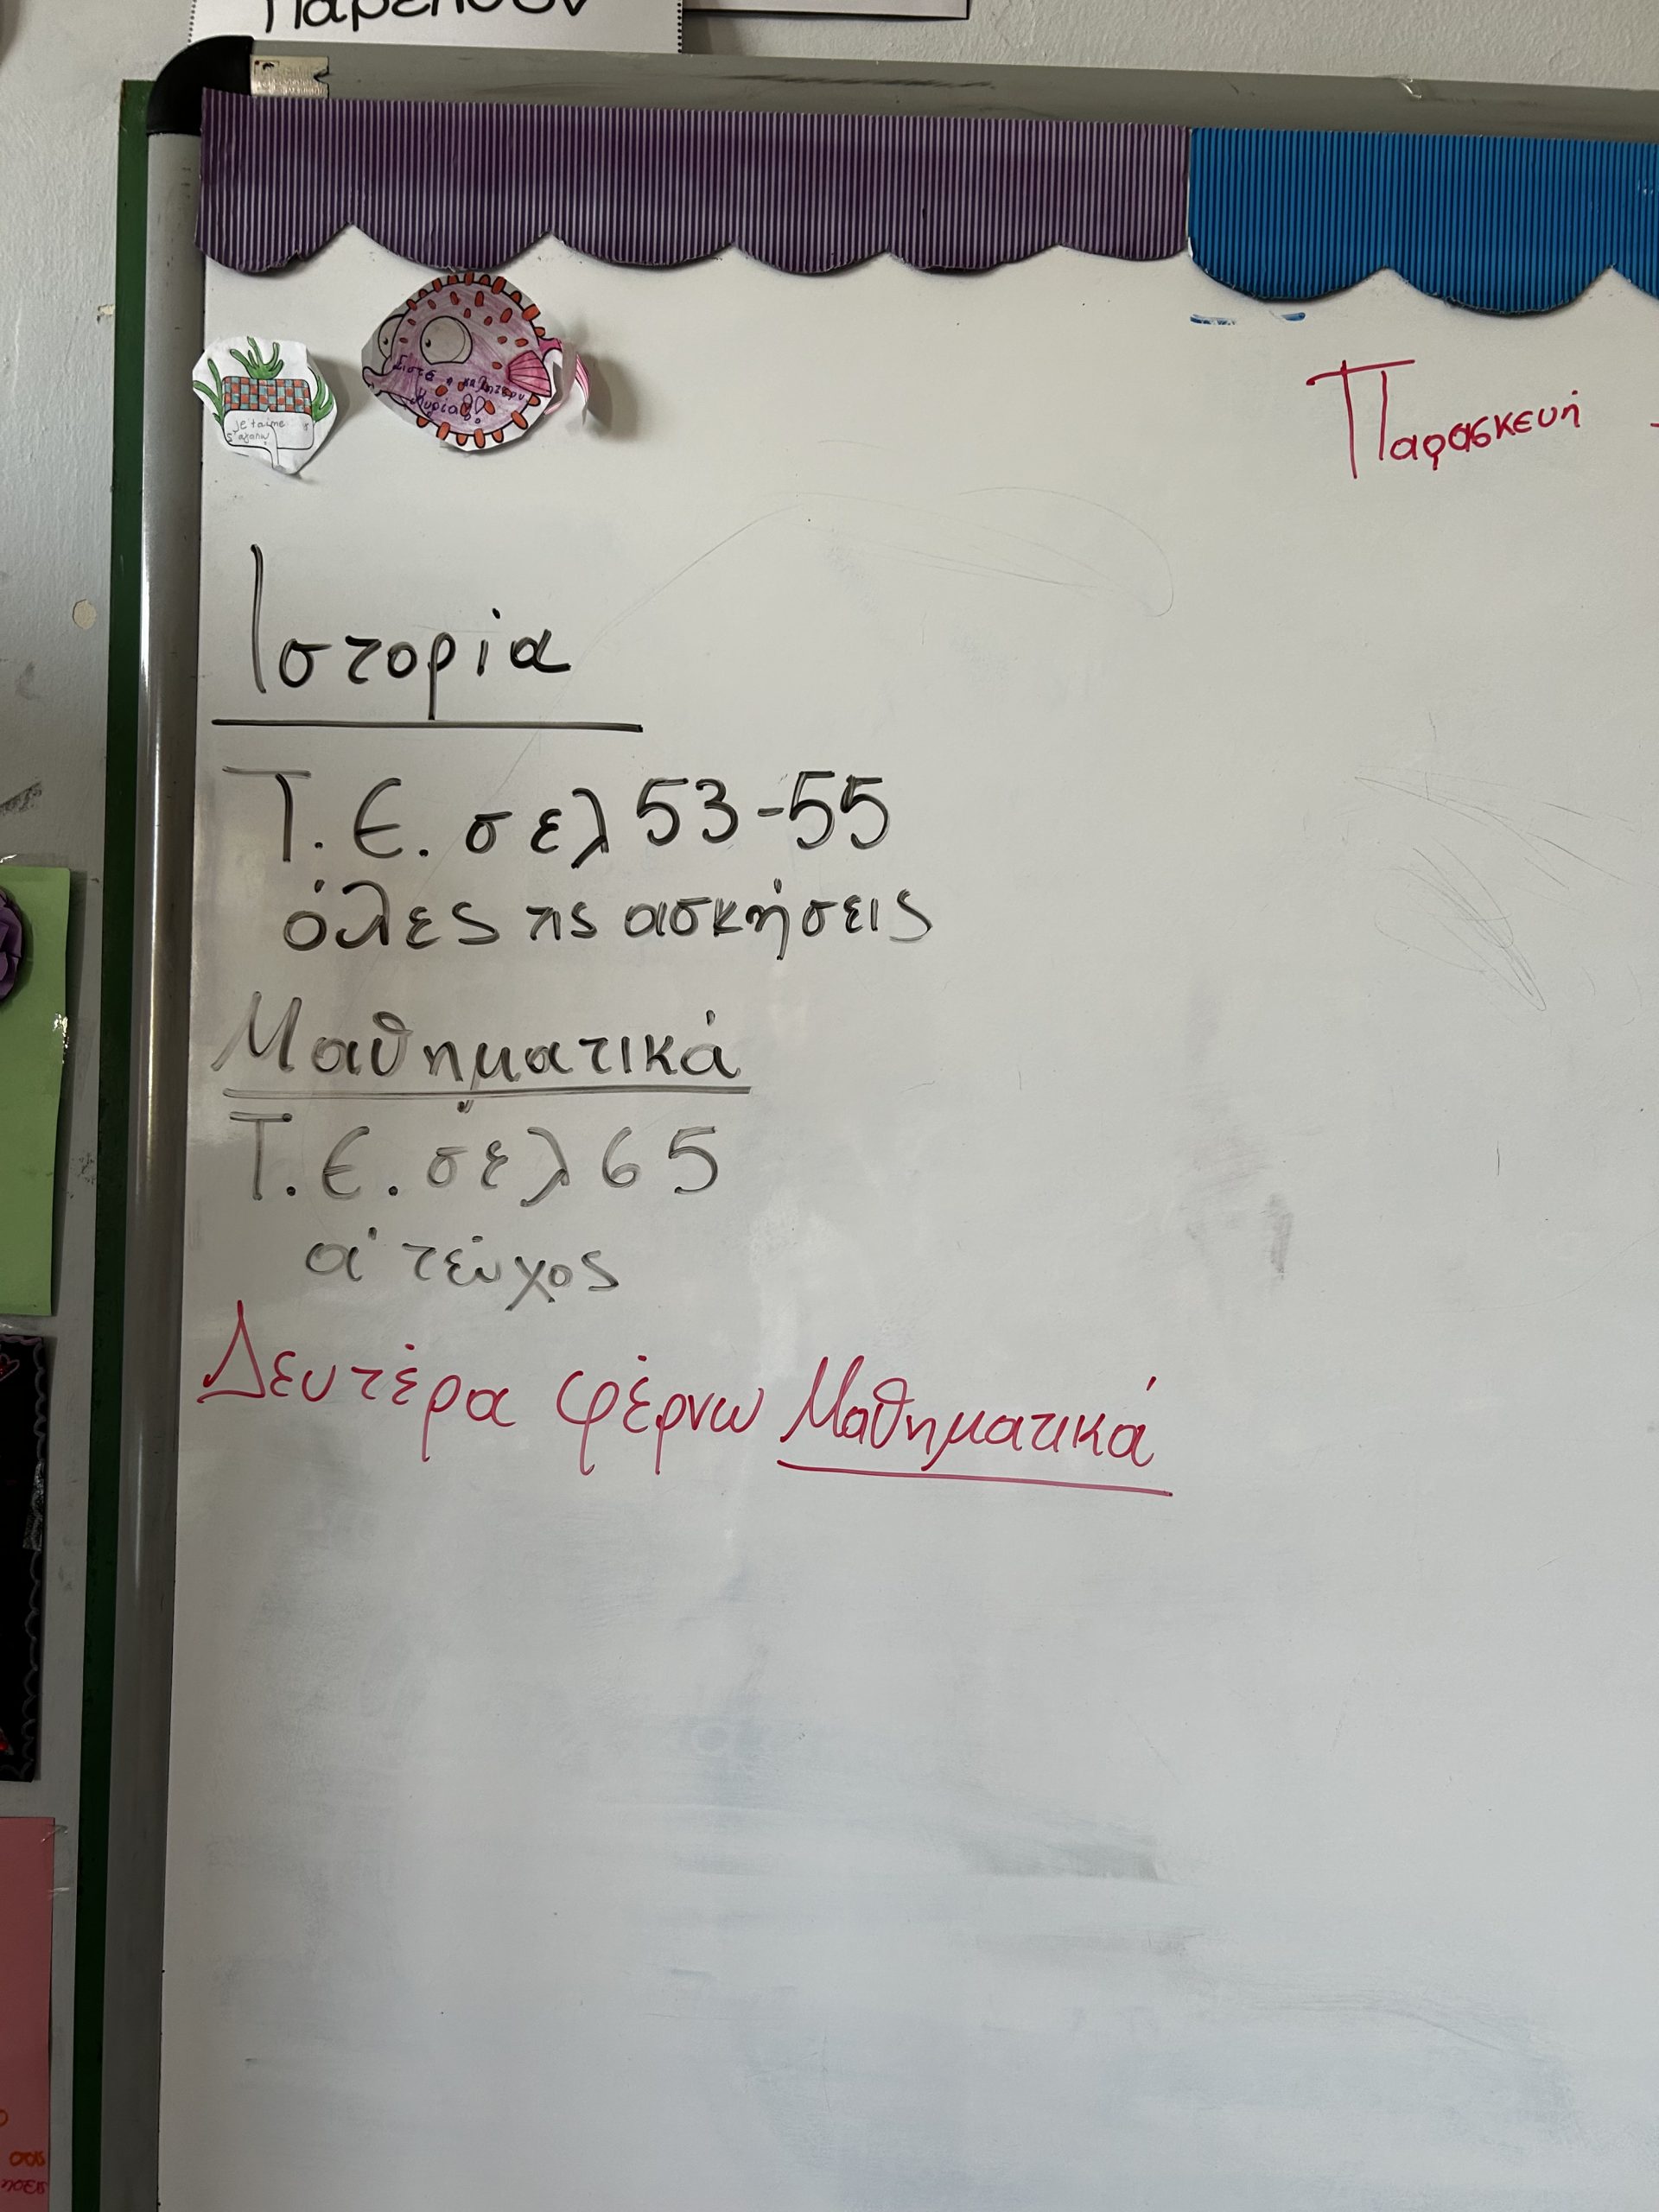 Παρελθόν
Παρασκευή
Je t'aime
Σ'αγαπώ
Είστε η καλύτερη
Κυρία
Ιστορία
Τ.Ε. σελ 53-55
όλες τις ασκήσεις
Μαθηματικά
Τ.Ε. σελ 65
α' τεύχος
Δευτέρα φέρνω Μαθηματικά